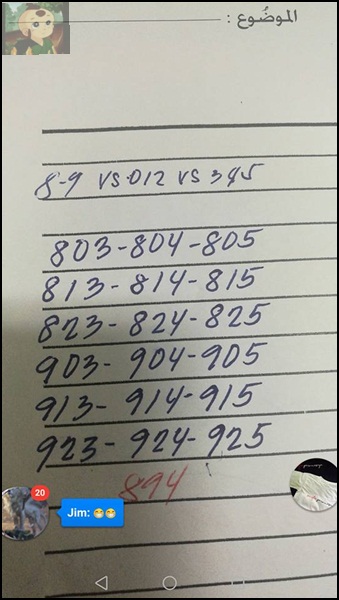 الموضُوع :
8-9 VS 012 VS 345
803-804-805
813-814-815
823-824-825
903-904-905
913-914-915
923-924-925
894
20
Jim: 😁😁